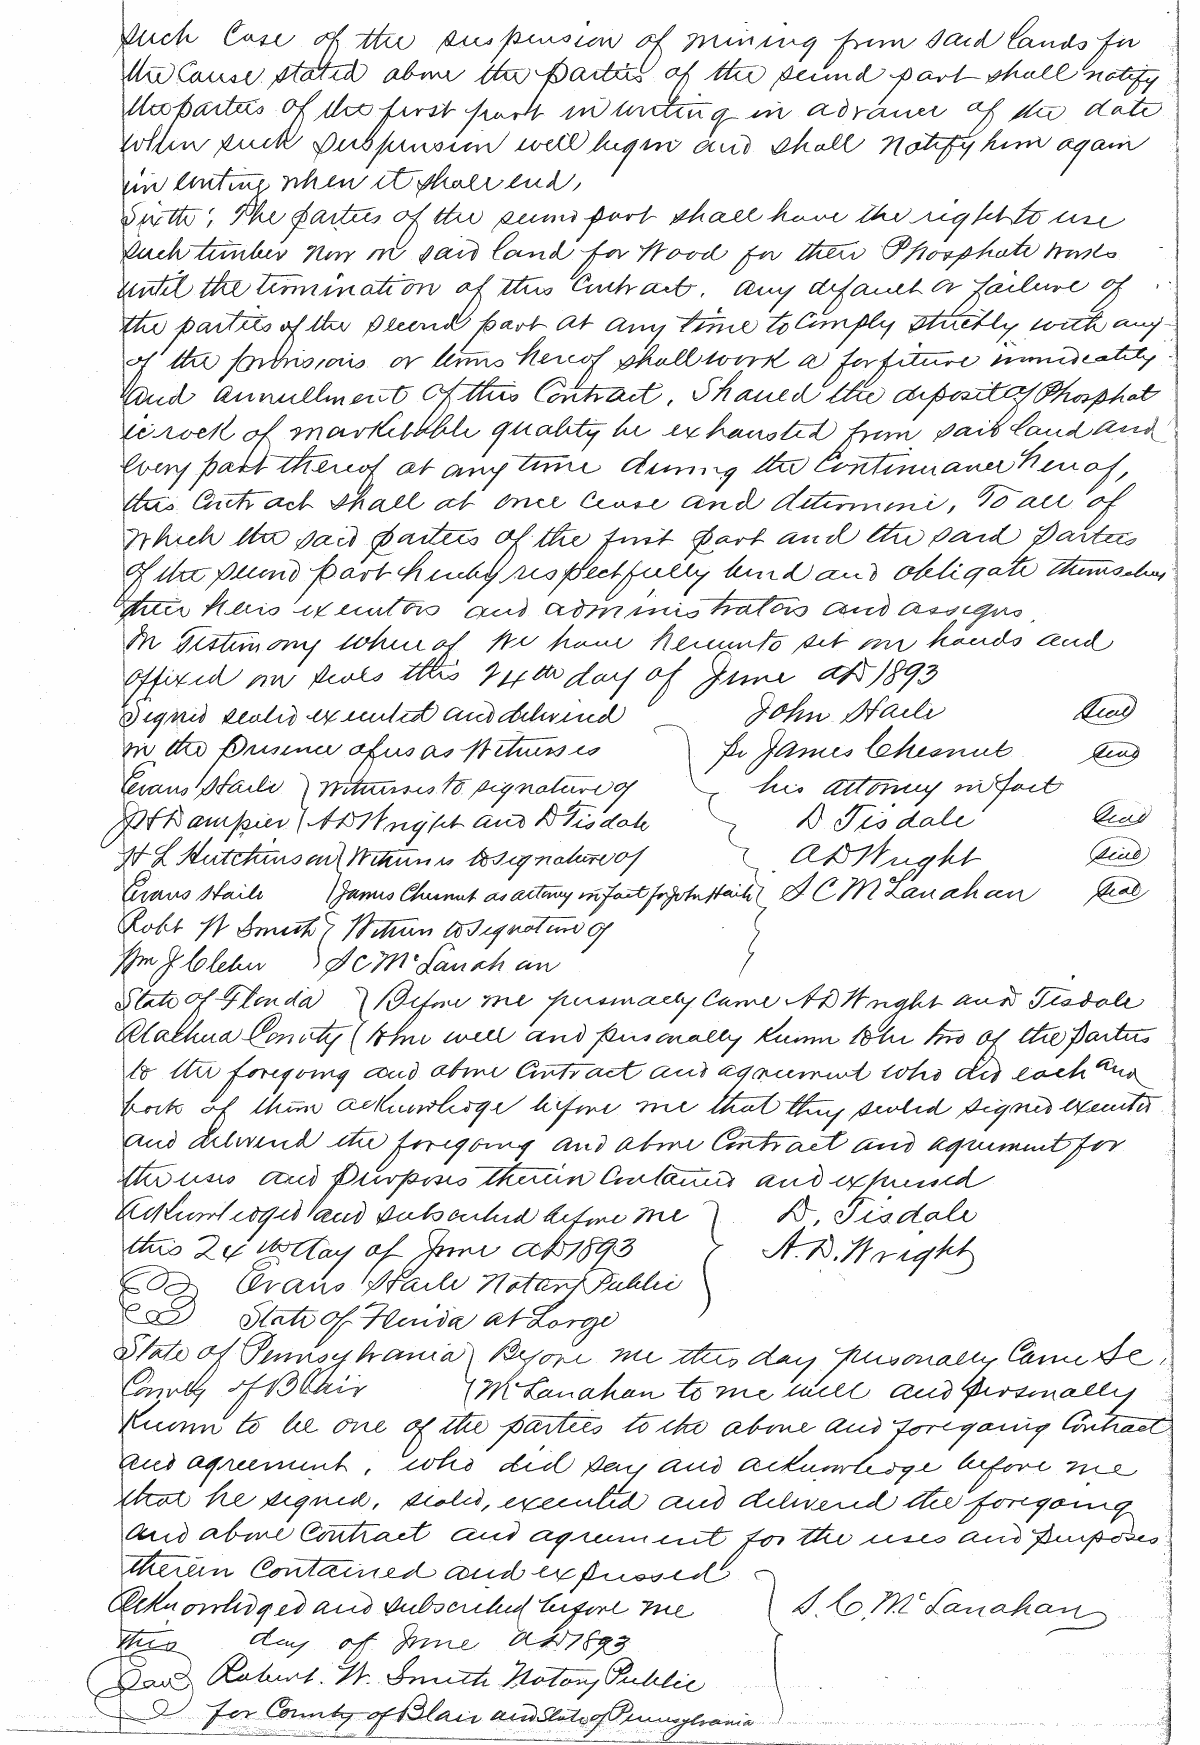 such Case of the suspension of mining from said lands for
the Cause stated above the parties of the second part shall notify
the parties of the first part in writing in advance of the date
when such suspension will begin and shall notify him again
in writing when it shall end,
Sixth; The parties of the second part shall have the right to use
such timber now on said land for Wood for their Phosphate works
until the termination of this Contract. Any default or failure of
the parties of the second part at any time to Comply strictly with any
of the provisions or terms hereof shall work a forfiture immediately
and annullment of this Contract. Should the deposit of Phosphat
ic rock of marketable quality be exhausted from said land and
every part thereof at any time during the Continuance hereof,
this Contract shall at once cease and determine, To all of
which the said parties of the first part and the said parties
of the second part hereby respectfully bind and obligate themselves
their heirs executors and administrators and assigns.
In Testimony whereof we have hereunto set our hands and
affixed our seals this 24th day of June AD 1893
Signed sealed executed and delivered John Haile Seal
in the presence of us as Witnesses Pr James Chesnut Seal
Evans Haile Witnesses to signature of his attorney in fact
J H Dampier A D Wright and D Tisdale D Tisdale Seal
H L Hutchinson Witness to signature of A D Wright Seal
Evans Haile James Chesnut as attorney in fact for John Haile S C McLanahan Seal
Robt W Smith Witness to signature of
Wm J S C McLanahan
State of Florida Before me personally Came A D Wright and D Tisdale
Alachua County to me well and personally known to be two of the parties
to the foregoing and above Contract and agreement who did each and
both of them acknowledge before me that they sealed signed executed
and delivered the foregoing and above Contract and agreement for
the uses and purposes therein Contained and expressed
Acknowledged and subscribed before me D. Tisdale
this 24th day of June AD 1893 A. D. Wright
Evans Haile Notary Public
Seal State of Florida at Large
State of Pennsylvania Before me this day personally Came S C.
County of Blair McLanahan to me well and personally
known to be one of the parties to the above and foregoing Contract
and agreement, who did say and acknowledge before me
that he signed, sealed, executed and delivered the foregoing
and above Contract and agreement for the uses and purposes
therein Contained and expressed
Acknowledged and subscribed before me S. C. McLanahan
this day of June AD 1893
Seal Robert. W. Smith Notary Public
for County of Blair and State of Pennsylvania